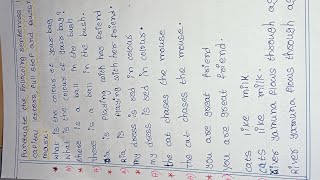 Punctuate the following sentences
capital letters, full stop and
mark.
* what is the colour of your bag
A) What is the colour of your bag?
* there is a ball in the bush
A) There is a ball in the bush.
* ria is playing with her friend
A) Ria is playing with her friend.
* my dress is red in colour
A) My dress is red in colour.
* the cat chases the mouse
A) The cat chases the mouse.
* you are great friend
A) You are great friend.
cats like milk
Cats like milk.
river yamuna flows through ag
River Yamuna flows through ag